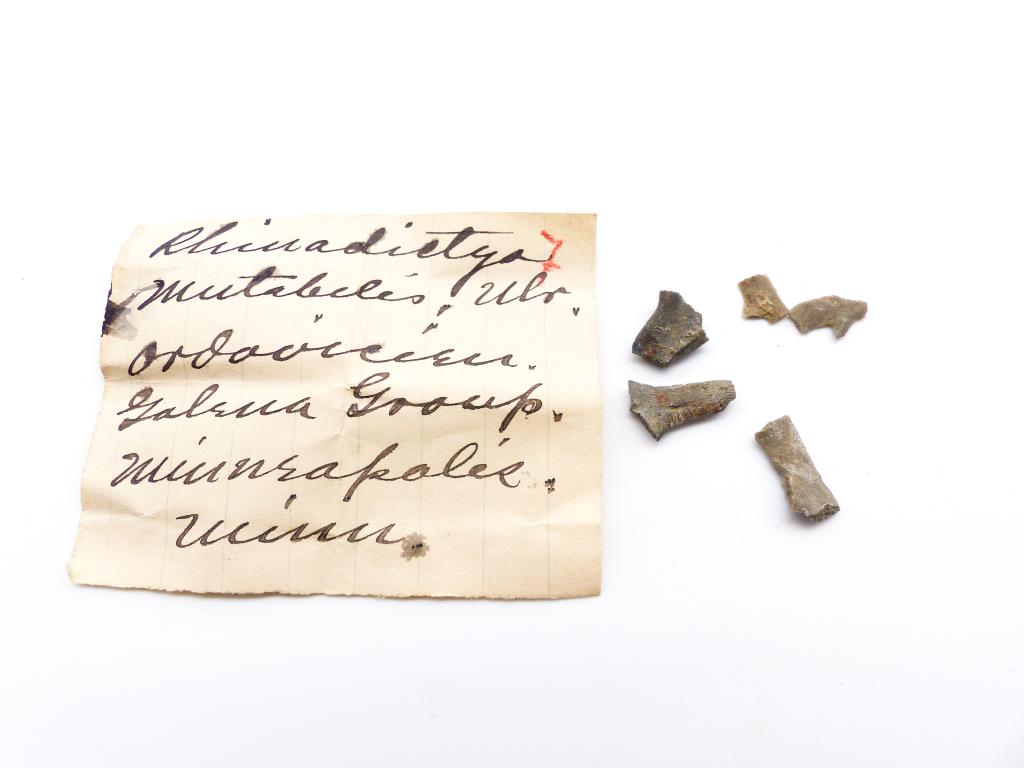 Rhinadictya
Mutabilis, Ulr.
Ordovicien.
Galena Group.
Minneapolis.
Minn.